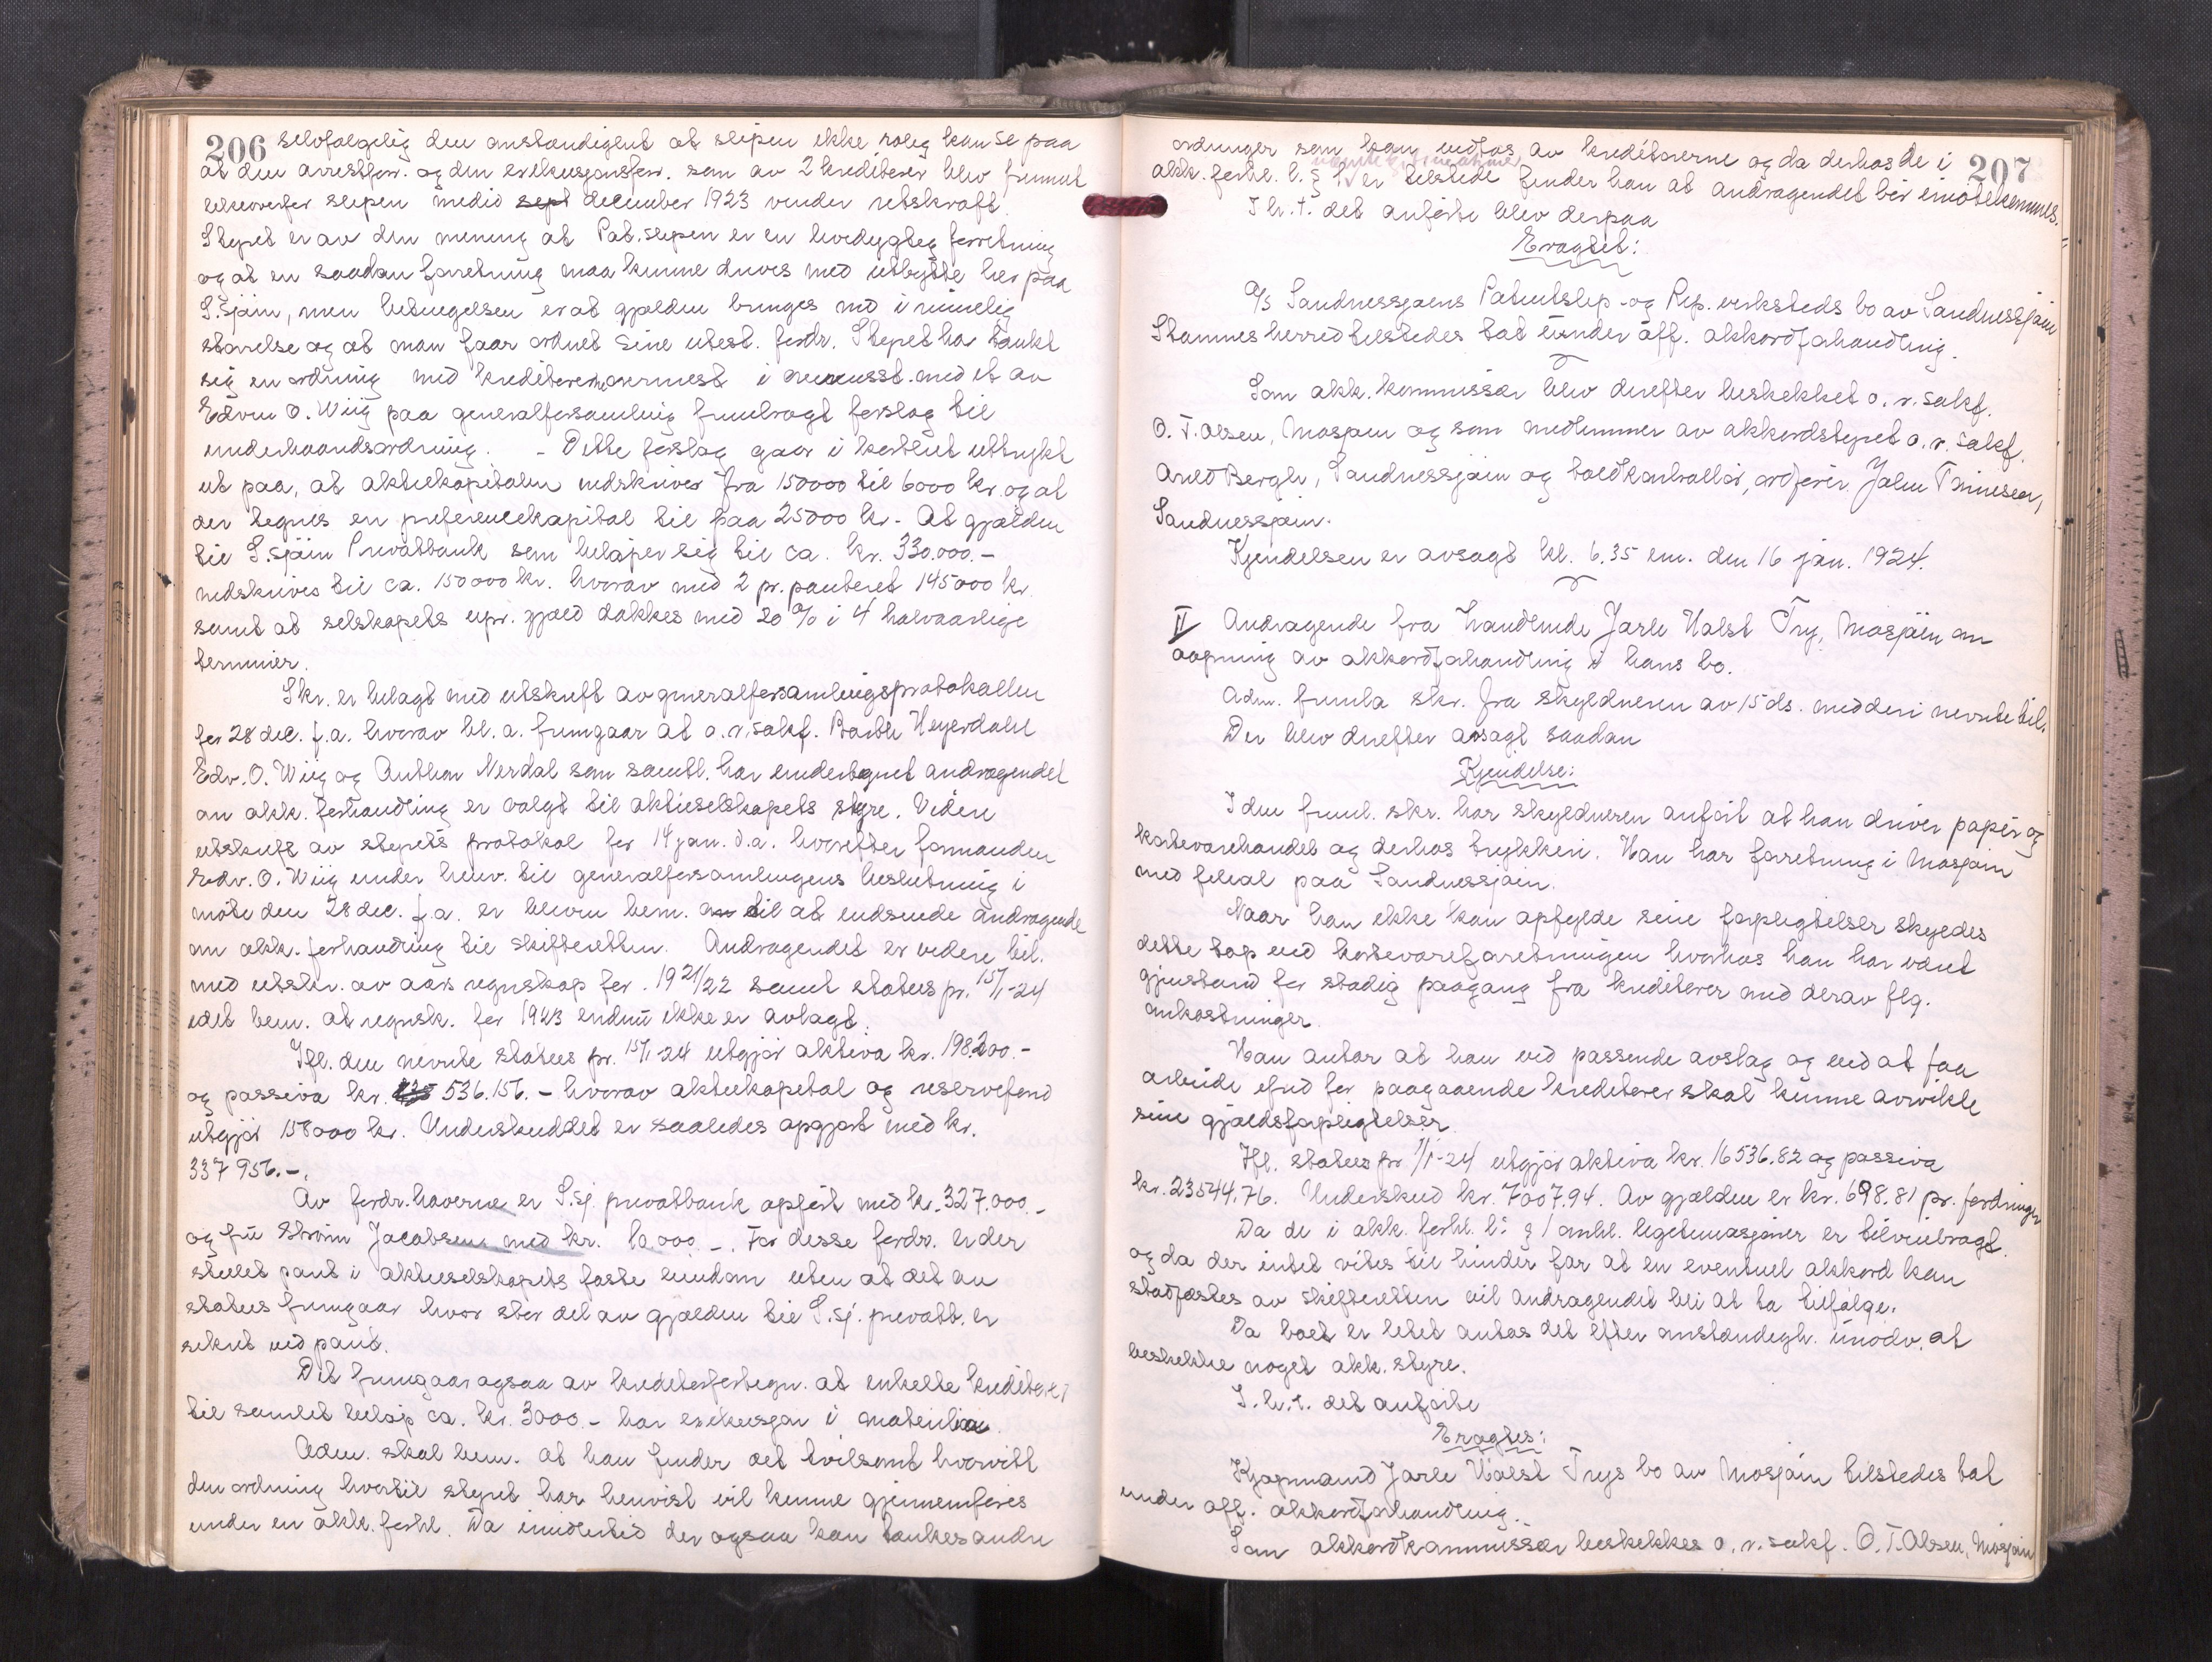 206 selvfølgelig den omstændighet at slipen ikke rolig kan se paa
at den arrestforr. og den exekusjonsforr. som av 2 kreditorer blev fremmet
likeoverfor slipen medio sept december 1923 vinder retskraft.
Styret er av den mening at Pat.slipen er en levedygtig forretning
og at en saadan forretning maa kunne drives med utbytte her paa
S.sjøen, men betingelsen er at gjælden bringes ned i rimelig
størrelse og at man faar ordnet sine utest. fordr. Styret har tænkt
sig en ordning med kreditorerne nærmest i overensst. med et av
Edvin O. Wiig paa generalforsamling fremlagt forslag til
underhaandsordning. - Dette forslag gaar i korthet uttrykt
ut paa, at aktiekapitalen nedskrives fra 150000 til 6000 kr. og at
der tegnes en preferencekapital til paa 25000 kr. - At gjælden
til S.sjøen Privatbank som beløper sig til ca. kr. 330.000.-
nedskrives til ca. 150000 kr. hvorav med 2 pr. panteret 145000 kr.
samt at selskapets upr. gjæld dækkes med 20 % i 4 halvaarlige
terminer.
Skr. er bilagt med utskrift av generalforsamlingsprotokollen
for 28 dec. f.a. hvorav bl.a. fremgaar at o.r.sakf. Barth Heyerdahl
Edv. O. Wiig og Anthon Nerdal som samtl. har undertegnet andragendet
om akk. forhandling er valgt til aktieselskapets styre. Videre
utskrift av styrets protokol for 14 jan. d.a. hvorefter formanden
Edv. O. Wiig under henv. til generalforsamlingens beslutning i
møte den 28 dec. f.a. er bleven bem. om til at indsende andragende
om akk. forhandling til skifteretten. Andragendet er videre bil.
med utskr. av aars regnskap for 1921/22 samt status pr. 15/1-24
idet bem. at regnsk. for 1923 endnu ikke er avlagt.
Ifl. den nevnte status pr. 15/1-24 utgjør aktiva kr. 198.200.-
og passiva kr. 536.156.- hvorav aktiekapital og reservefond
utgjør 158000 kr. Underskuddet er saaledes opgjort med kr.
337956.-.
Av fordr.haverne er S.sj. privatbank opført med kr. 327.000.-
og fru Strøm Jacobsen med kr. 10.000.-. For desse fordr. er der
stillet pant i aktieselskapets faste eiendom uten at det av
status fremgaar hvor stor del av gjælden til S.sj. privatb. er
sikret ved pant.
Det fremgaar ogsaa av kreditorfortegn. at enkelte kreditorer
til samlet beløp ca. kr. 3000.- har exekusjon i materialer.
Adm. skal bem. at han finder det tvilsomt hvorvitt
den ordning hvortil styret har henvist vil kunne gjennemføres
under en akk. forhl. Da imidlertid der ogsaa kan tænkes andre
207
ordninger som kan vedtas av kreditorerne og da derhos de i
akk. forhl. l. § 1 er tilstede finder han at andragendet bør imøtekommes.
I h.t. det anførte blev derpaa
Eragtet:
A/S Sandnessjøens Patentslip- og Rep. verksteds bo av Sandnessjøen
Stamnes herred tilstedes tat under off. akkordforhandling.
Som akk. kommissær blev derefter beskikket o.r.sakf.
O. T. Olsen, Mosjøen og som medlemmer av akkordstyret o.r. sakf.
Arild Bergh, Sandnessjøen og toldkontrollør, ordfører Johu Tønnesen,
Sandnessjøen.
Kjendelsen er avsagt kl. 6.35 em. den 16 jan. 1924.
II Andragende fra handlende Jarle Halst Try, Mosjøen om
aapning av akkordforhandling i hans bo.
Adm. fremla skr. fra skyldneren av 15 ds. med deri nevnte bil.
Der blev derefter avsagt saadan
Kjendelse:
I den freml. skr. har skyldneren anført at han driver papir og
kortevarehandel og derhos trykkeri. Han har forretning i Mosjøen
med filial paa Sandnessjøen.
Naar han ikke kan opfylde sine forpligtelser skyldes
dette tap ved kortevareforretningen hvorhos han har været
gjenstand for stadig paagang fra kreditorer med derav flg.
omkostninger.
Han antar at han ved passende avslag og ved at faa
arbeide i fred for paagaaende kreditorer skal kunne avvikle
sine gjældsforpligtelser.
Ifl. status pr 1/1-24 utgjør aktiva kr. 16536.82 og passiva
kr. 23544.76. Underskud kr. 7007.94. Av gjælden er kr. 698.81 pr. fordringer
Da de i akk. forhl. l: § 1 omhl. legitimasjoner er tilveiebragt.
og da der intet vites til hinder for at en eventuel akkord kan
stadfæstes av skifteretten vil andragendet bli at ta tilfølge.
Da boet er litet antas det efter omstændigh. unødv. at
beskikke noget akk. styre.
I. h. t. det anførte
Eragtes:
Kjøpmand Jarle Halst Trys bo av Mosjøen tilstedes tat
under off. akkordforhandling.
Som akkordkommissær beskikkes o.r.sakf. O. T. Olsen, Mosjøen